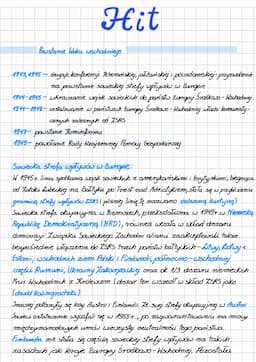 Hit
Powstanie bloku wschodniego
1943, 1945 - decyzje konferencji teherańskiej, jałtańskiej i poczdamskiej - przyzwolenie
na powstanie sowieckiej strefy wpływów w Europie
1944-1945 - wkraczanie wojsk sowieckich do państw Europy Środkowo-Wschodniej
1944-1948 - ustalanie w państwach Europy Środkowo-Wschodniej władz komunisty-
cznych zależnych od ZSRS
1947 - powstanie Kominformu
1949 - powstanie Rady Wzajemnej Pomocy Gospodarczej
Sowiecka strefa wpływów w Europie
W 1945 r. linia spotkania wojsk sowieckich z amerykańskimi i brytyjskimi, biegnąca
od Zatoki Lubeckiej na Bałtyku po Triest nad Adriatykiem, stała się w przybliżeniu
granicą strefy wpływów ZSRS (później linię tę nazwano żelazną kurtyną)
Sowiecka strefa okupacyjna w Niemczech, przekształcona w 1949 r. w Niemiecką
Republikę Demokratyczną (NRD), również weszła w skład obszaru
dominacji Związku Sowieckiego. Zachodni alianci zaakceptowali także
bezpośrednie włączenie do ZSRS trzech państw bałtyckich - Litwy, Łotwy i
Estonii, wschodnich ziem Polski i Finlandii, północno-wschodniej
części Rumunii, Ukrainy Zakarpackiej oraz ok. 1/3 obszaru niemieckich
Prus Wschodnich z Królewcem (obszar ten wszedł w skład ZSRS jako
obwód kaliningradzki)
Inaczej potoczyły się losy Austrii i Finlandii. Ze swej strefy okupacyjnej w Austrii
Sowieci ostatecznie wycofali się w 1955 r., po zagwarantowaniu na mocy
międzynarodowych umów wieczystej neutralności tego państwa.
Finlandia nie stała się częścią sowieckiej strefy wpływów na takich
zasadach jak kraje Europy Środkowo-Wschodniej.